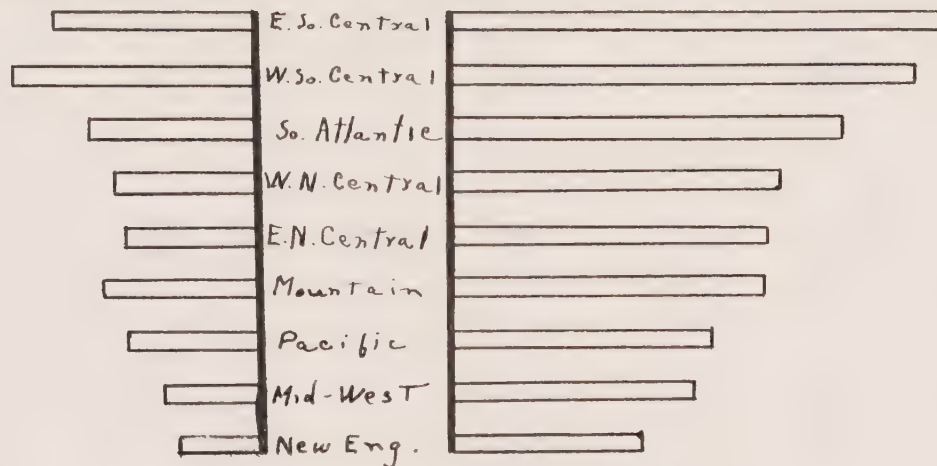 E. So. Central
W. So. Central
So. Atlantic
W. N. Central
E. N. Central
Mountain
Pacific
Mid-West
New Eng.